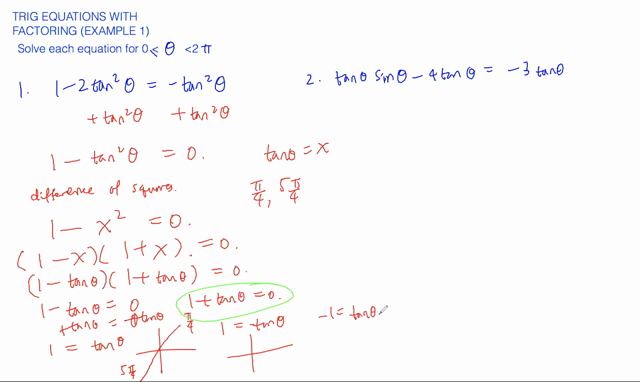 TRIG EQUATIONS WITH
FACTORING (EXAMPLE 1)
Solve each equation for 0 ≤ θ < 2 π
1. 1 - 2tan²θ = -tan²θ
+tan²θ +tan²θ
1 - tan²θ = 0.
difference of squares.
1 - x² = 0.
(1-x)(1+x) = 0.
(1-tanθ)(1+tanθ) = 0.
1-tanθ = 0
+tanθ = +tanθ
1 = tanθ
π/4
5π
1+tanθ=0.
1 = tanθ
-1 = tanθ
tanθ = x
π/4, 5π/4
2. tanθ sinθ - 4tanθ = -3tanθ